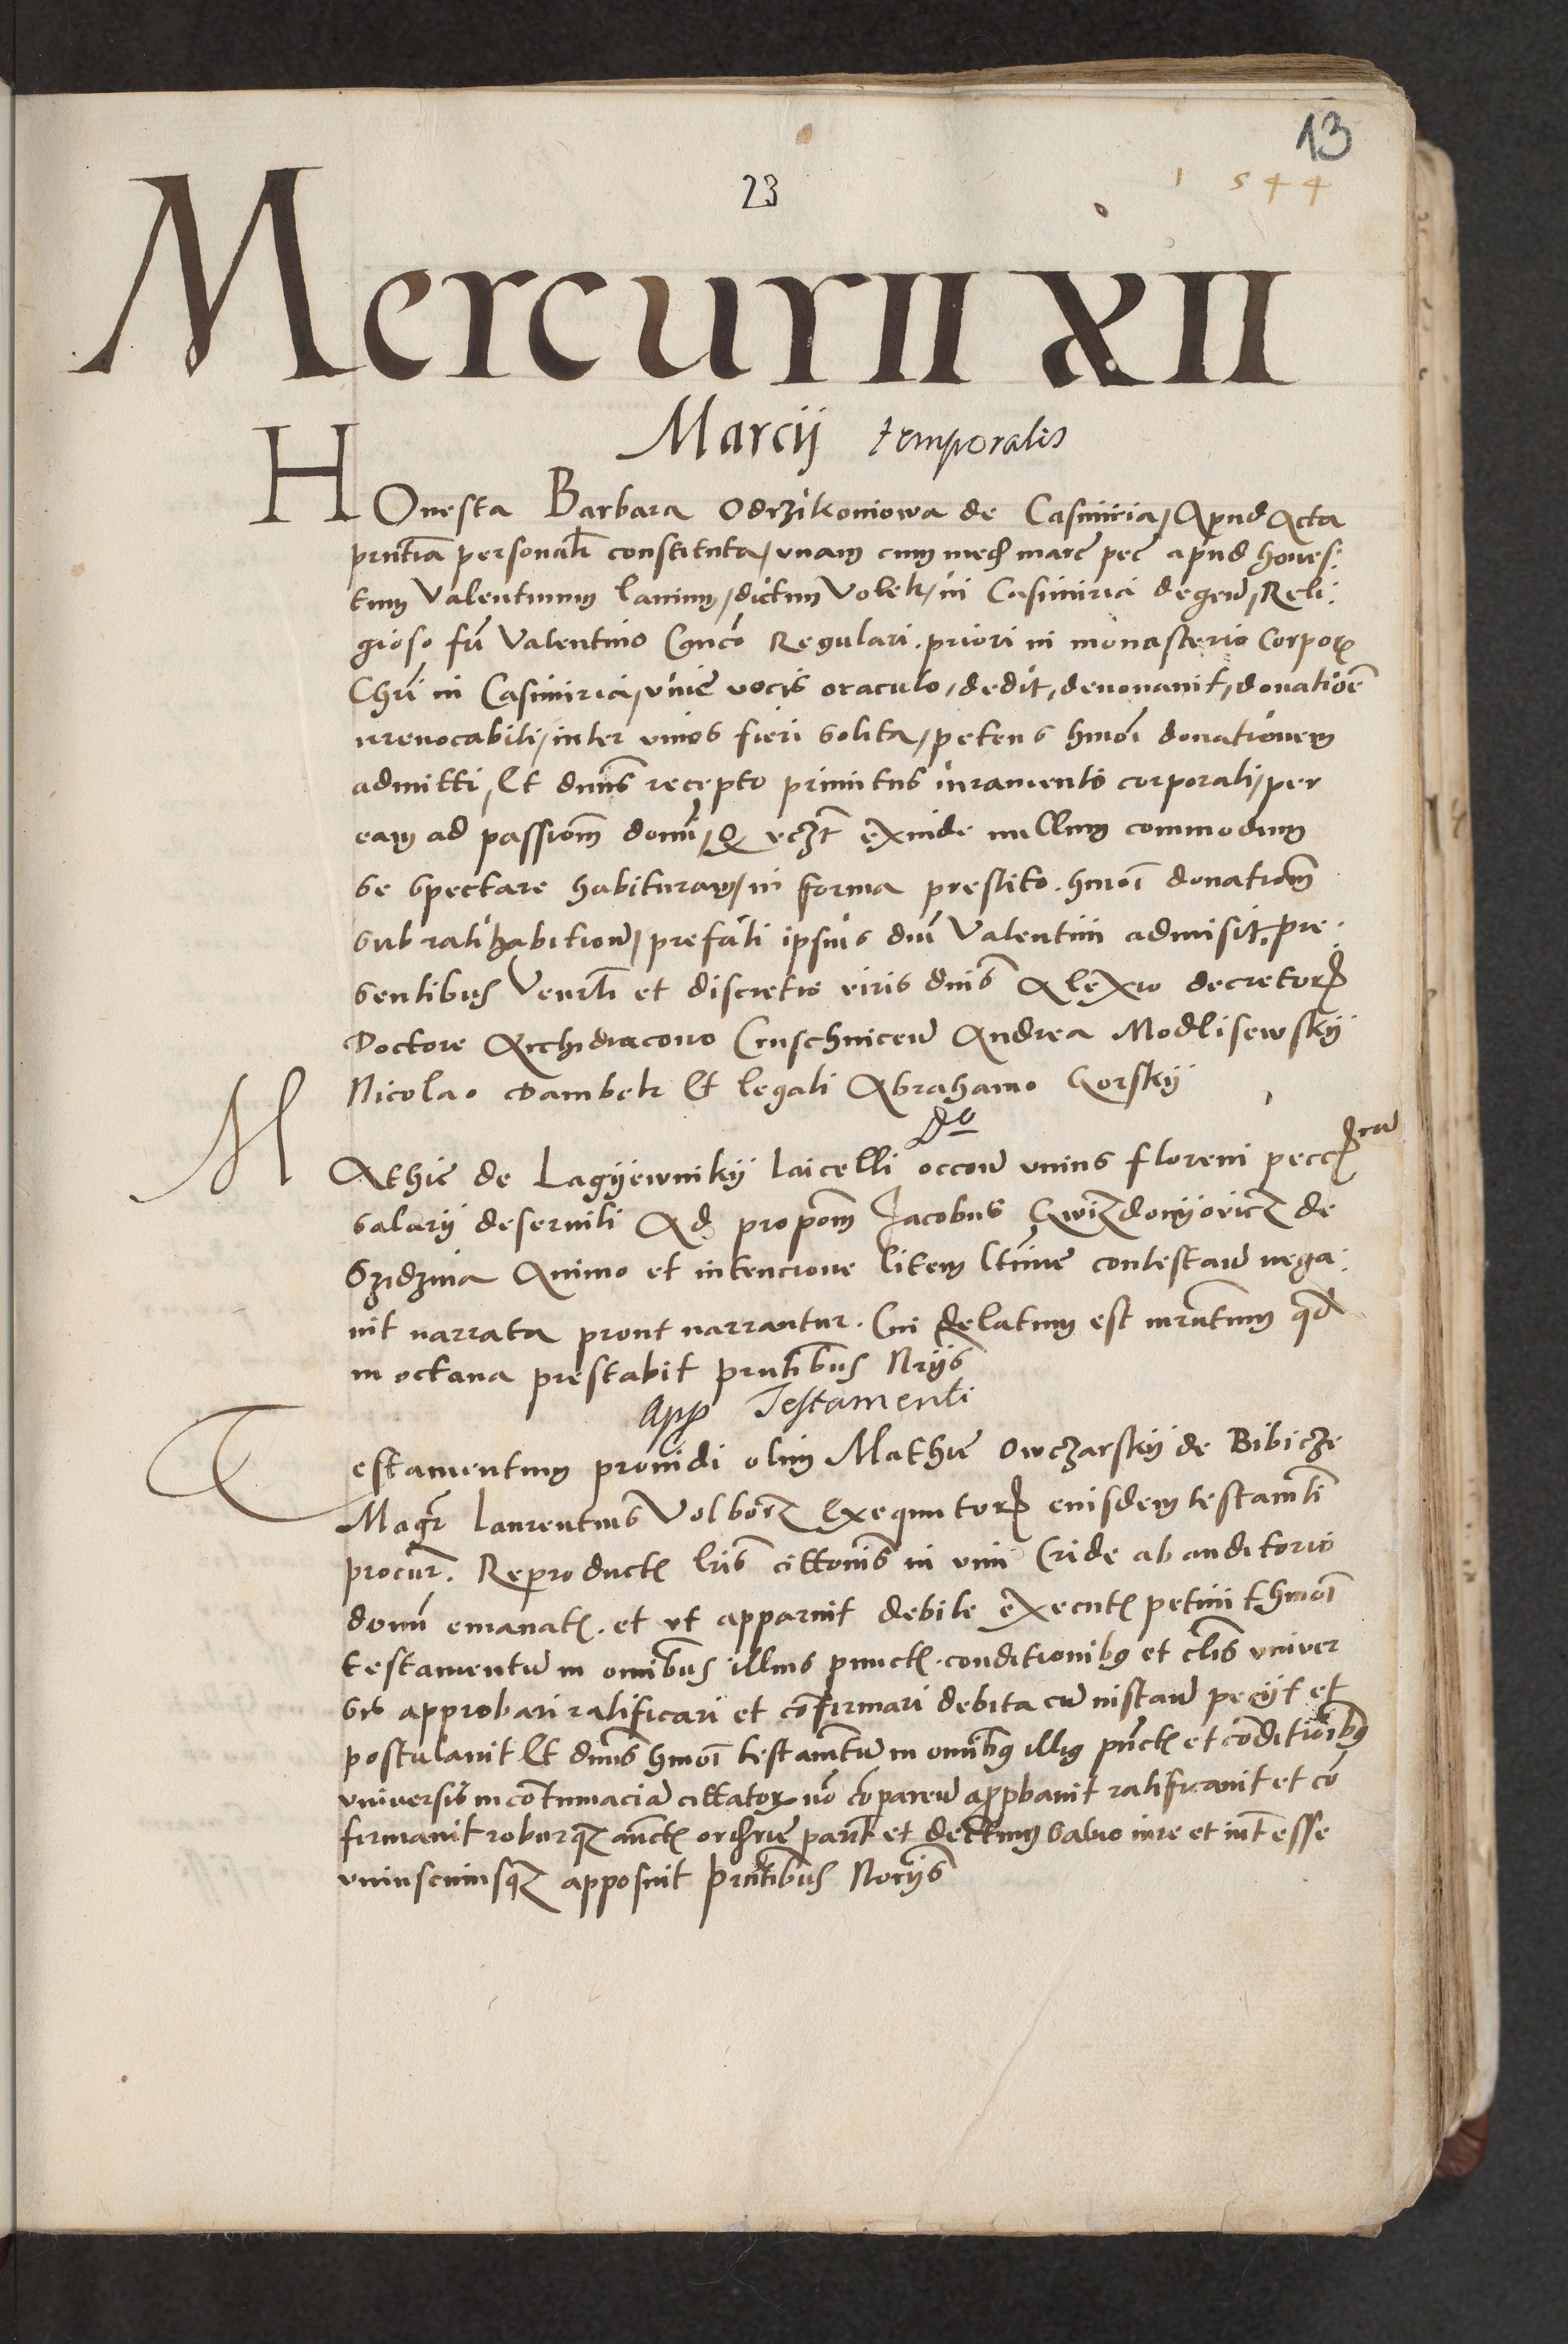 13
1544
23
Mercurii XII
Marcij temporalis
HOnesta Barbara Odrzikoniowa de Casimiria, Apud Acta
pntia personalr constituta, unam cum med marc pec apud hones:
tum Valentinum lanium, dictum Volek, in Casimiria degen, Reli:
gioso fri Valentino Canco Regulari, priori in monasterio Corpor
Chri in Casimiria, vive vocis oraculo, dedit, devovavit, donatioe
irrevocabili, inter vivos fieri solita, petens hmoi donationem
admitti, Et dnus recepto primitus iuramento corporali, per
eam ad passionem domi, q vczt exinde nullum commodum
se spectare habituram, in forma prestito. hmoi donationem
sub ratihabitione, prefati ipsius dni Valentini admisit, pre:
sentibus Venrli et discretis viris dnis Alexio decretor
Doctore Archidiacono Cruschnicen Andrea Modlisewskij
Nicolao Dambek Et legali Abrahamo Gorskij
MAthie de Lagyewnikij laicelli occon unius floreni pecc
salarij deserviti Ad propom Jacobus Gwizdonyowicz de
Szidzina Animo et intencione litem ltime contestan nega:
vit narrata prout narrantur. Cui delatum est iurntum qd
in octava prestabit pntibus Nrijs
App Testamenti
Testamentum providi olim Mathie Owczarskij de Bibicze
Magr Laurentius Volborz Exequutor eiusdem testamti
procur. Reproduct lris cittonis in vim Cride ab auditorio
domi emanat. et ut apparuit debite execut petiuit hmoi
testamentu in omibus illius punct. conditionibus et clis univer
sis approbari ratificari et cofirmari debita cu instan petijt et
postulavit Et dnus hmoi testamtu in omibus illius puct et coditioibus
universis in cotumaciam cittator no coparen approbavit ratificavit et co
firmavit roburqz auct ordrie parit et decttum salvo iure et int esse
uniuscuiusqz apposuit Pntibus Norijs